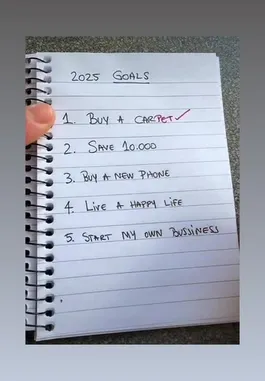 2025 GOALS
1. BUY A CARPET ✓
2. SAVE 10.000
3. BUY A NEW PHONE
4. LIVE A HAPPY LIFE
5. START MY OWN BUSSINESS